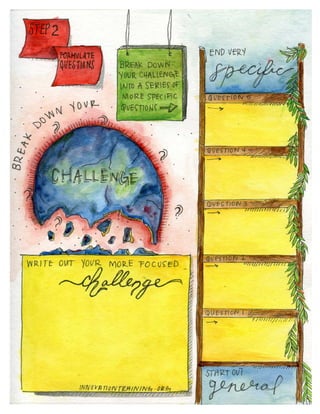 STEP 2
FORMULATE
QUESTIONS
BREAK DOWN
YOUR CHALLENGE
INTO A SERIES OF
MORE SPECIFIC
QUESTIONS
BREAK DOWN YOUR
CHALLENGE
WRITE OUT YOUR MORE FOCUSED
challenge
INNOVATIONTRAINING.ORG
END VERY
specific
QUESTION 5
QUESTION 4
QUESTION 3
QUESTION 2
QUESTION 1
START OUT
general